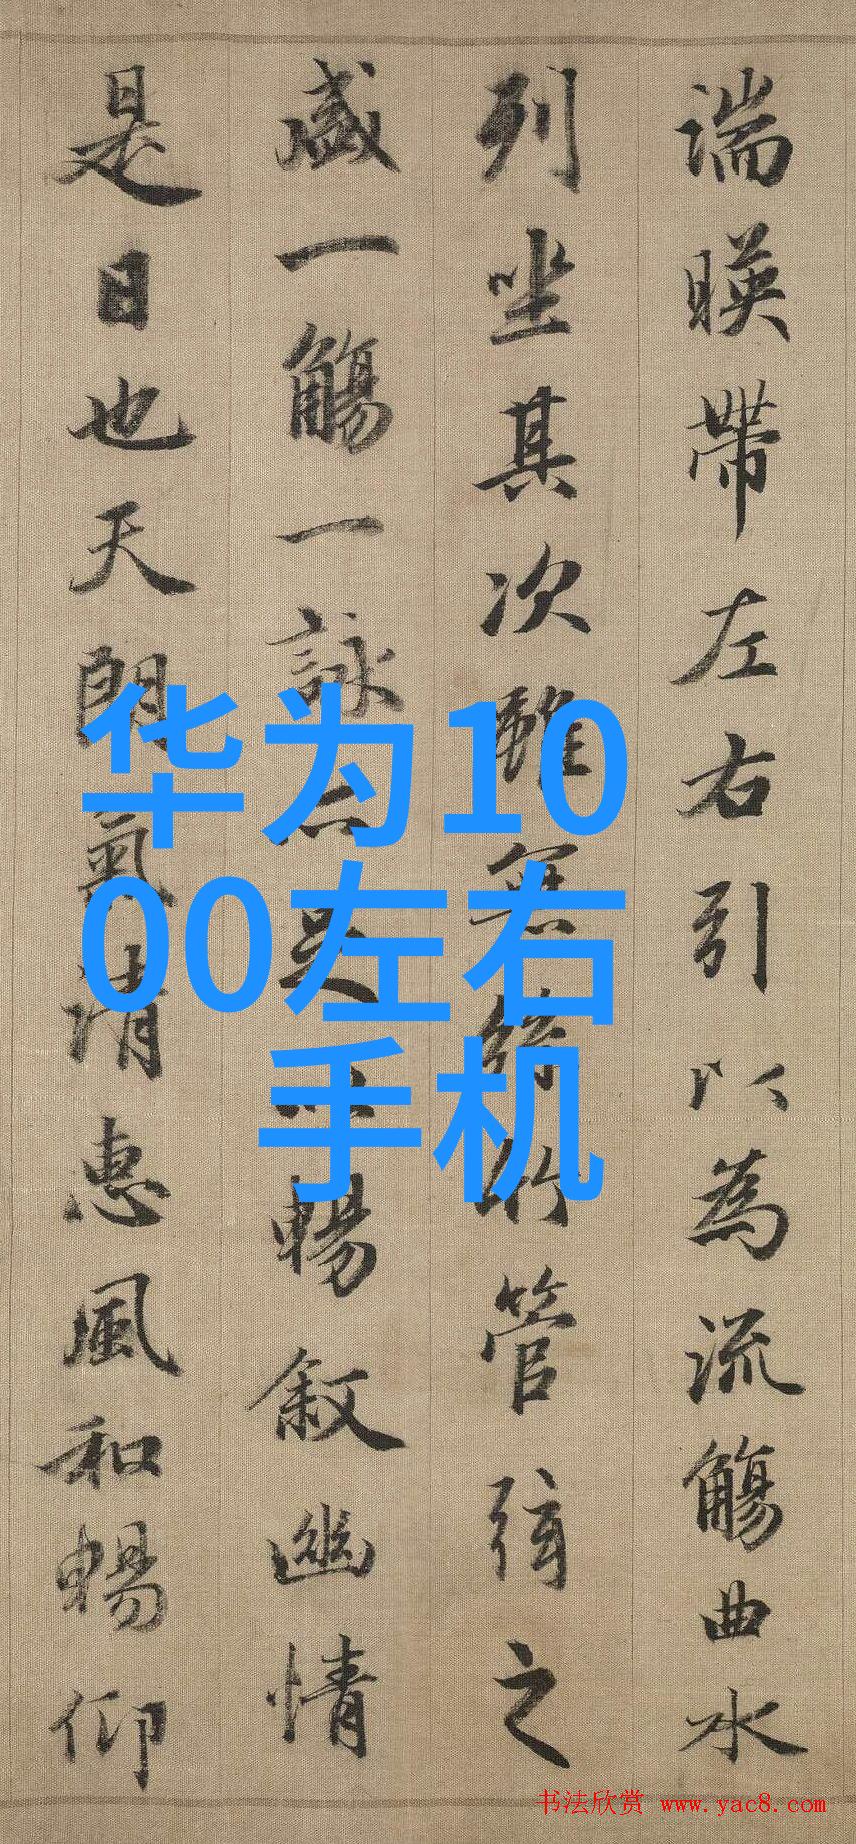 湍暎帶左右引以為流觴曲水
列坐其次雖無絲竹管弦之
盛一觴一詠亦足以暢叙幽情
是日也天朗氣清惠風和暢仰
华为10
00左右
手机
书法欣赏 www.yac8.com